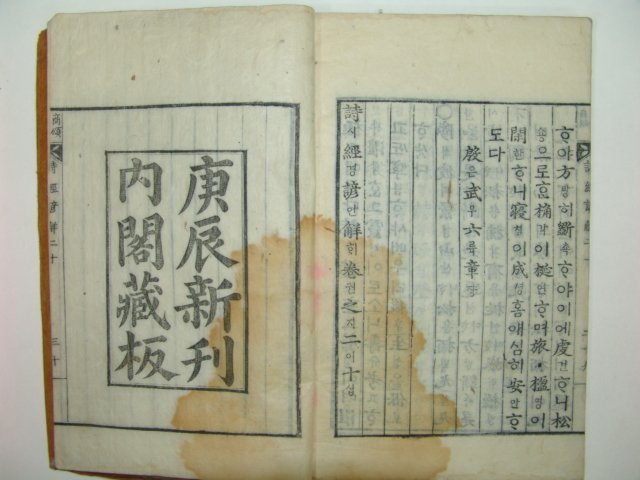 ᄒᆞ야方방히斲착ᄒᆞ야이에虔건ᄒᆞ니松
숑으로ᄒᆞᆫ桷각이梴연ᄒᆞ며旅려ᄒᆞᆫ楹영이
閑한ᄒᆞ니寢침이成셩홈애심히安안ᄒᆞ
도다
殷은武무六륙章쟝
詩시經경諺언解ᄒᆡ卷권之지二이十십
庚辰新刊
內閣藏板
商頌
詩經諺解二十
三十